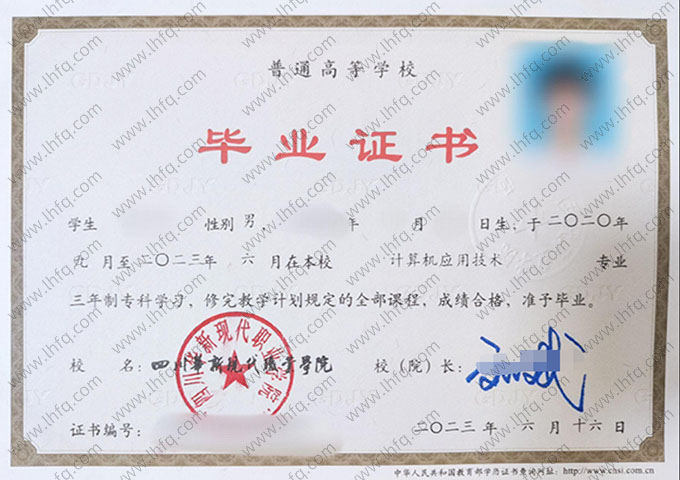 普通高等学校
毕业证书
学生 性别 男, 年 月 日生，于二〇二〇年
九月至二〇二三年 六月在本校 计算机应用技术 专业
三年制专科学习，修完教学计划规定的全部课程，成绩合格，准予毕业。
校 名：四川华新现代职业学院 校（院）长：
证书编号： 二〇二三年 六月十六日
中华人民共和国教育部学历证书查询网址：http://www.chsi.com.cn
四川华新现代职业学院
www.lhfq.com